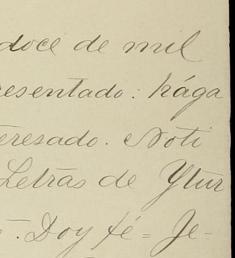 doce de mil
esentado: hága
eresado. Noti
Letras de Ytur
Doy fé = Je-